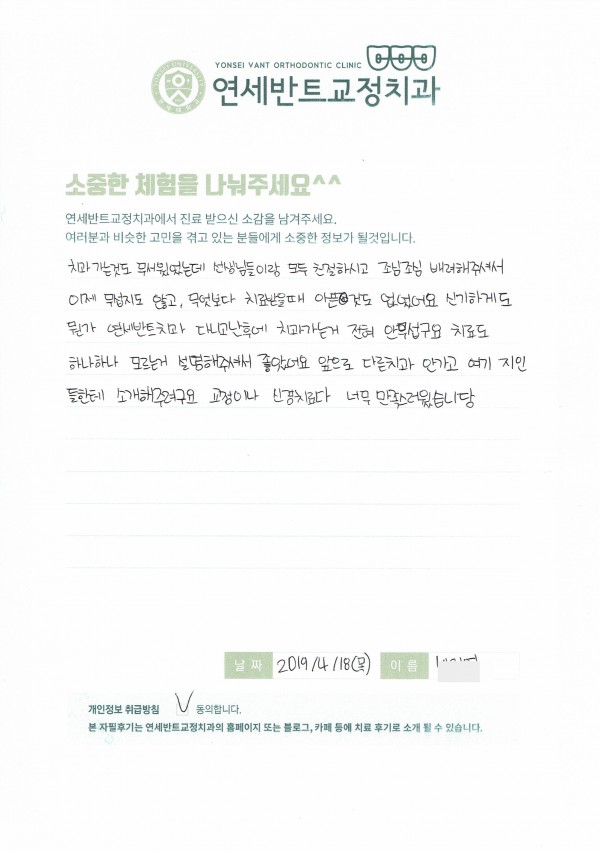 YONSEI VANT ORTHODONTIC CLINIC
연세반트교정치과
소중한 체험을 나눠주세요^^
연세반트교정치과에서 진료 받으신 소감을 남겨주세요.
여러분과 비슷한 고민을 겪고 있는 분들에게 소중한 정보가 될것입니다.
치과가는것도 무서웠었는데 선생님들이랑 모두 친절하시고 조심조심 배려해주셔서
이제 무섭지도 않고, 무엇보다 치료받을때 아픈것도 없었어요 신기하게도
뭔가 연세반트치과 다니고난후에 치과가는거 전혀 안무섭구요 치료도
하나하나 모르는거 설명해주셔서 좋았네요 앞으로 다른치과 안가고 여기 지인
들한테 소개해주려구요 교정이나 신경치료다 너무 만족스러웠습니당
날 짜 2019/4/18(목) 이 름
개인정보 취급방침 V 동의합니다.
본 자필후기는 연세반트교정치과의 홈페이지 또는 블로그, 카페 등에 치료 후기로 소개 될 수 있습니다.